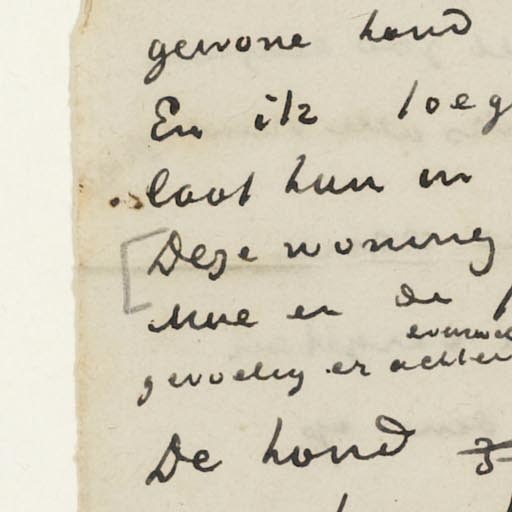 gewone hond
En ik loeg
laat hun in
Deze woning
Mue en de
evenwe
gevoelig er achter
De hond